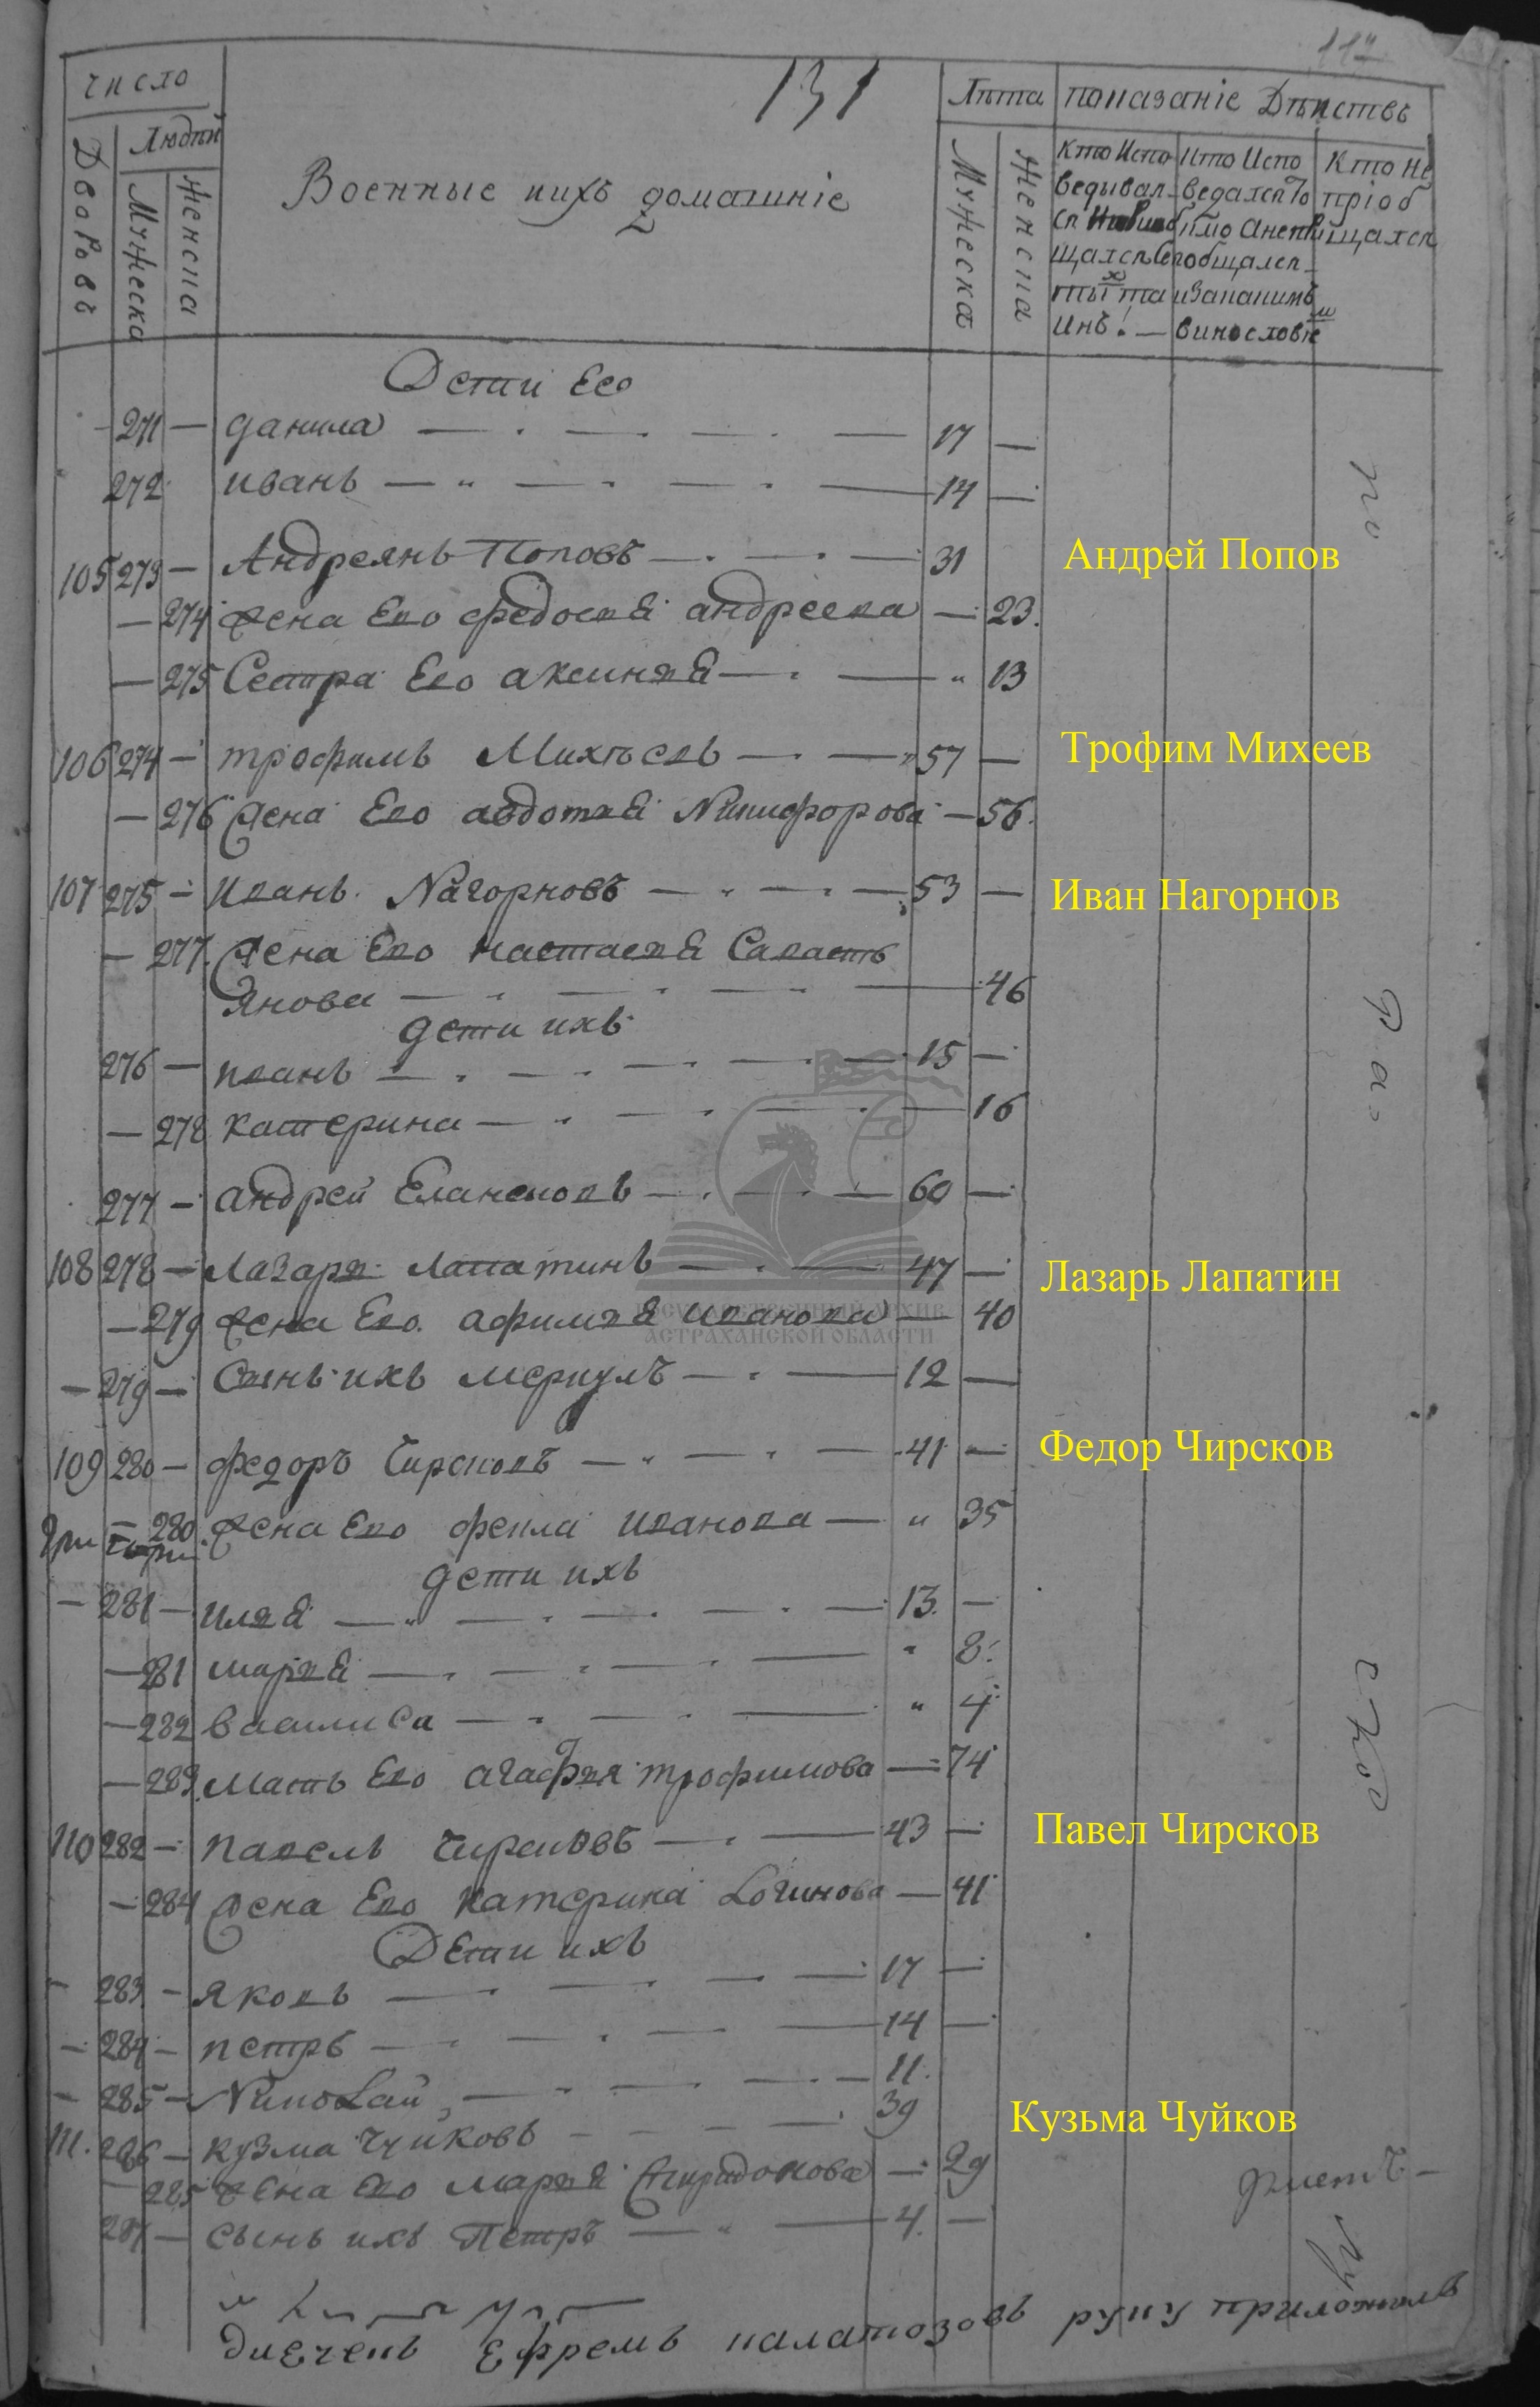 117
число
131
Лѣта показаніе Дѣиствъ
Дворовъ
Людѣй
Мужеска
Женска
Военные ихъ домашніе
Мужеска
Женска
Кто Испо
ведывал
Кто Испо
ведался То
Кто Не
пріоб
щался
общался
винословіе
Дети Его
271 — данила — 17 —
272 иванъ — 14 —
105 273 — Андреянъ Поповъ — 31
Андрей Попов
— 274 жена Его федосья андреева — 23.
— 275 Сестра Его аксинья — " 13
106 274 — трофимъ Михѣевъ — 57 —
Трофим Михеев
— 276 жена Его авдотья Никифорова — 56.
107 275 — Иванъ Нагорновъ — 53 —
Иван Нагорнов
— 277. жена Его настасья Савасть
янова — 46
дети ихъ
276 — иванъ — 15 —
— 278 катерина — 16
277 — андрей Елансковъ — 60 —
108 278 — Лазарь лапатинъ — 47 —
Лазарь Лапатин
ГОСУДАРСТВЕННЫЙ АРХИВ
— 279 жена Его афимья иванова — 40
АСТРАХАНСКОЙ ОБЛАСТИ
— 279 — Сынъ ихъ меркулъ — 12 —
109 280 — федоръ Чирсковъ — 41 —
Федор Чирсков
— 280 жена Его фекла иванова — " 35
дети ихъ
— 281 — илья — 13. —
— 281 марья — " 8.
— 282 василиса — " 4
— 283. Мать Его агафья трофимова — 74
110 282 — павелъ Чирсковъ — 43 —
Павел Чирсков
— 284 жена Его катерина Логинова — 41
Дети ихъ
283 — яковъ — 17 —
— 284 — петръ — 14 —
— 285 — Николай — 11.
111. 286 — кузма Чуйковъ — 39
Кузьма Чуйков
— 285 жена Его марья Спиридонова — 29
287 — сынъ ихъ Петръ — 4. —
дьячекъ Ефремъ палатозовъ руку приложилъ